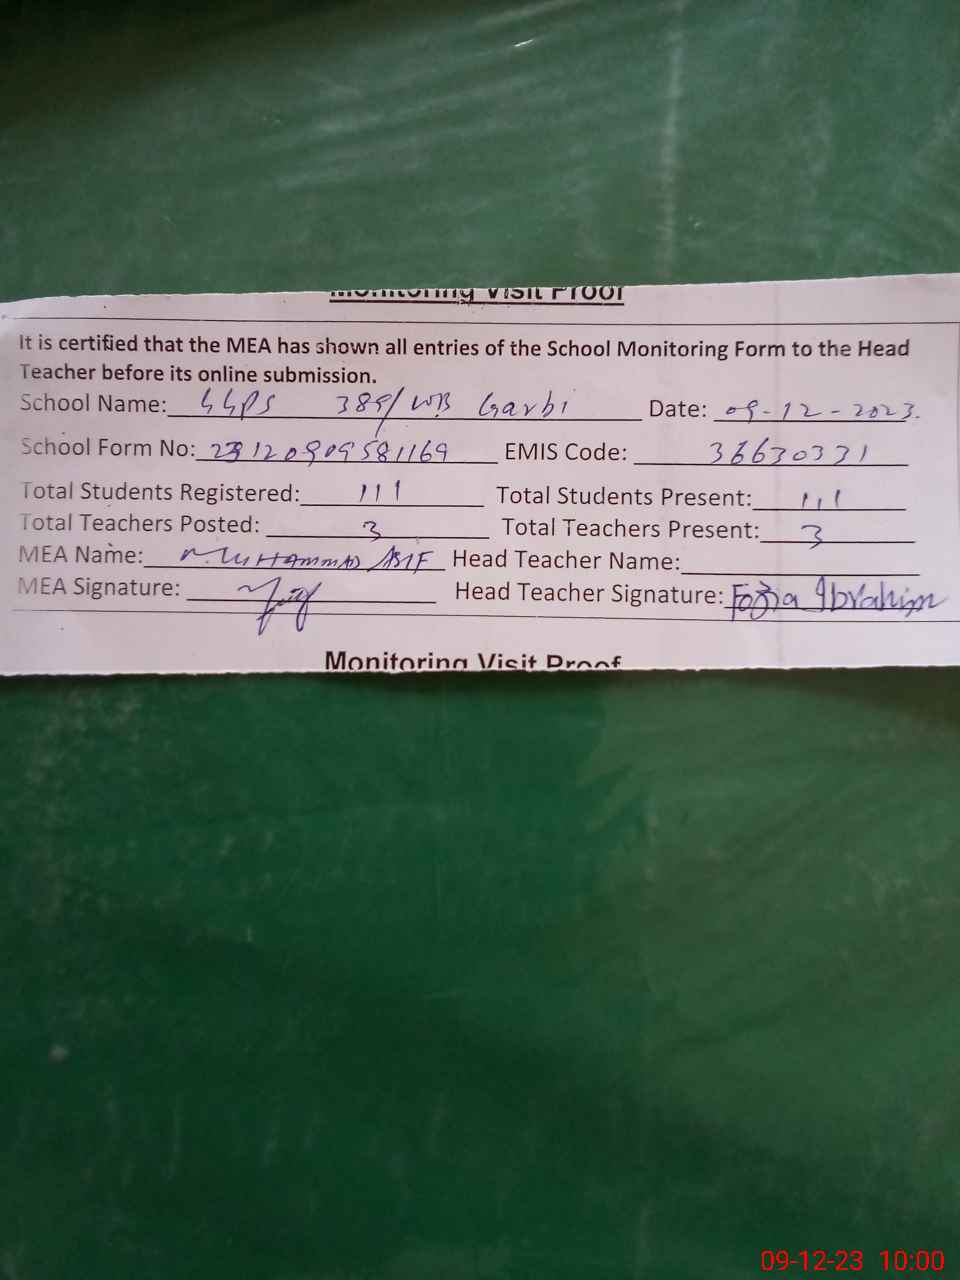 Monitoring Visit Proof
It is certified that the MEA has shown all entries of the School Monitoring Form to the Head
Teacher before its online submission.
School Name: GGPS 389/WB Garbi Date: 09-12-2023.
School Form No: EMIS Code: 36630331
Total Students Registered: 111 Total Students Present: 111
Total Teachers Posted: 3 Total Teachers Present: 3
MEA Name: MUHAMMAD ASIF Head Teacher Name:
MEA Signature: Head Teacher Signature: Fozia Ibrahim
Monitoring Visit Proof
09-12-23 10:00